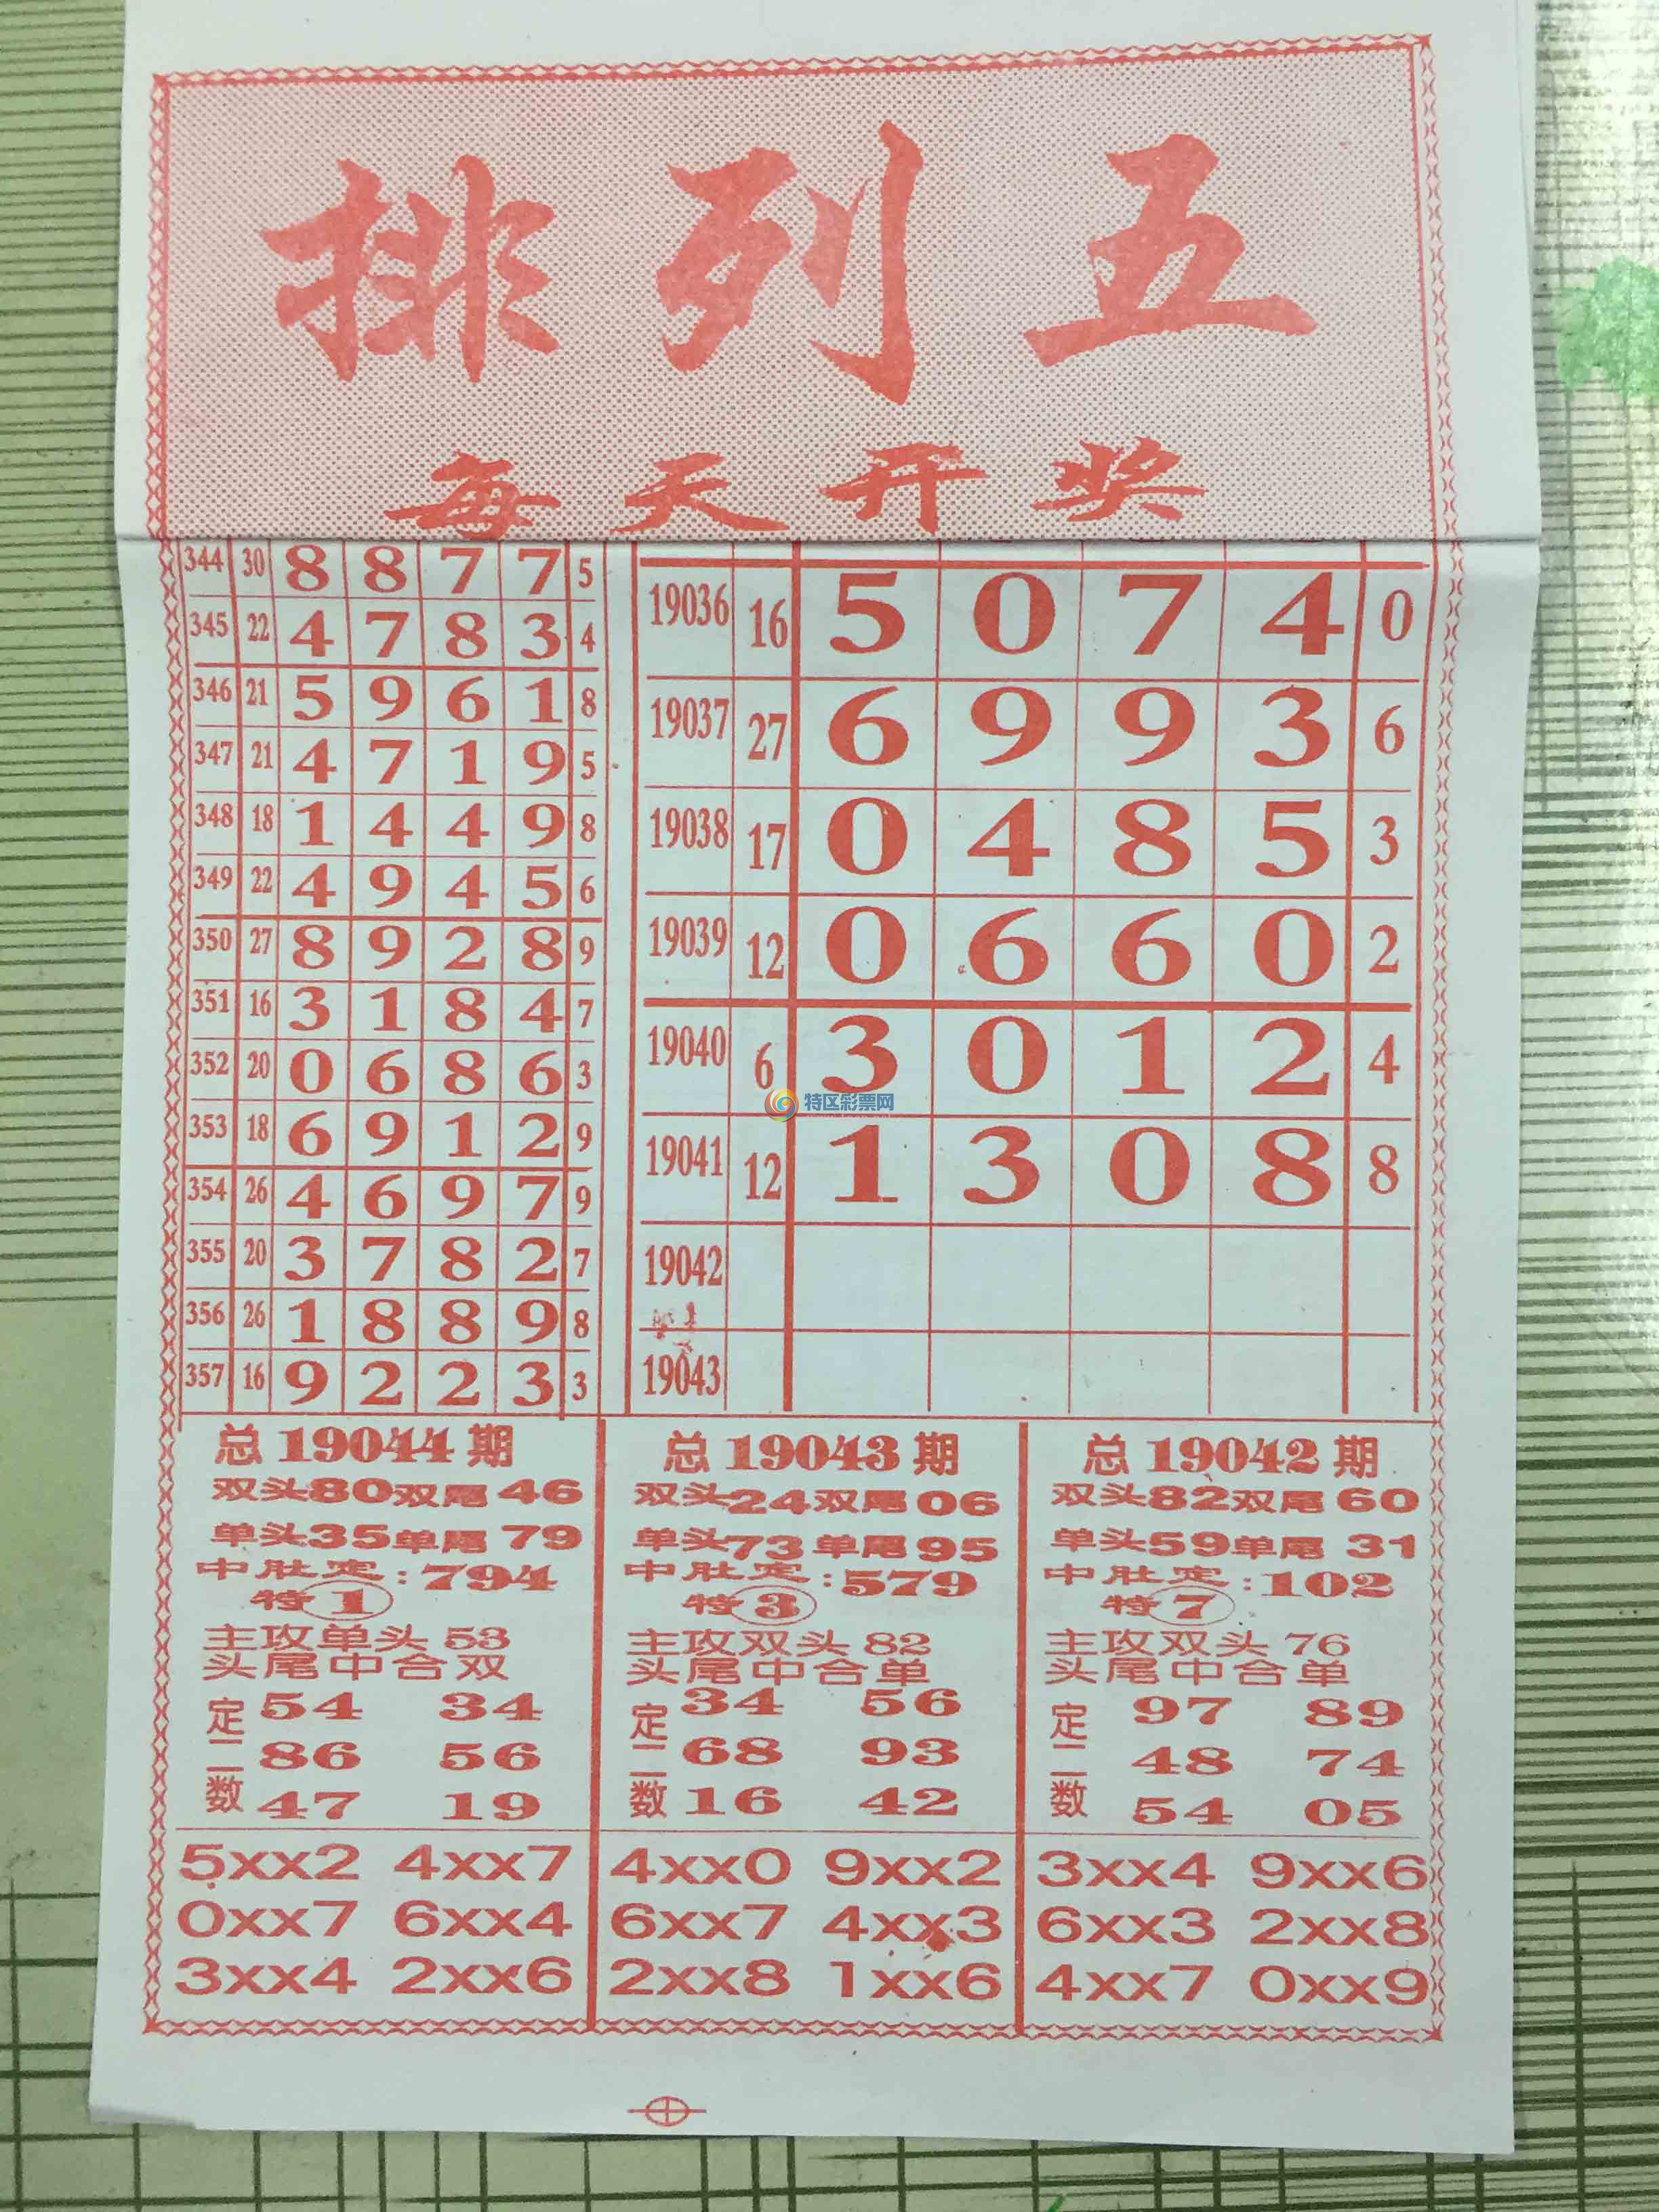 排列五
每天开奖
344 30 8 8 7 7 5
345 22 4 7 8 3 4
346 21 5 9 6 1 8
347 21 4 7 1 9 5
348 18 1 4 4 9 8
349 22 4 9 4 5 6
350 27 8 9 2 8 9
351 16 3 1 8 4 7
352 20 0 6 8 6 3
353 18 6 9 1 2 9
354 26 4 6 9 7 9
355 20 3 7 8 2 7
356 26 1 8 8 9 8
357 16 9 2 2 3 3
19036 16 5 0 7 4 0
19037 27 6 9 9 3 6
19038 17 0 4 8 5 3
19039 12 0 6 6 0 2
19040 6 3 0 1 2 4
19041 12 1 3 0 8 8
19042
19043
特区彩票网
总19044期
双头80双尾46
单头35单尾79
中肚定:794
特1
主攻单头53
头尾中合双
定二数
54 34
86 56
47 19
5xx2 4xx7
0xx7 6xx4
3xx4 2xx6
总19043期
双头24双尾06
单头73单尾95
中肚定:579
特3
主攻双头82
头尾中合单
定二数
34 56
68 93
16 42
4xx0 9xx2
6xx7 4xx3
2xx8 1xx6
总19042期
双头82双尾60
单头59单尾31
中肚定:102
特7
主攻双头76
头尾中合单
定二数
97 89
48 74
54 05
3xx4 9xx6
6xx3 2xx8
4xx7 0xx9